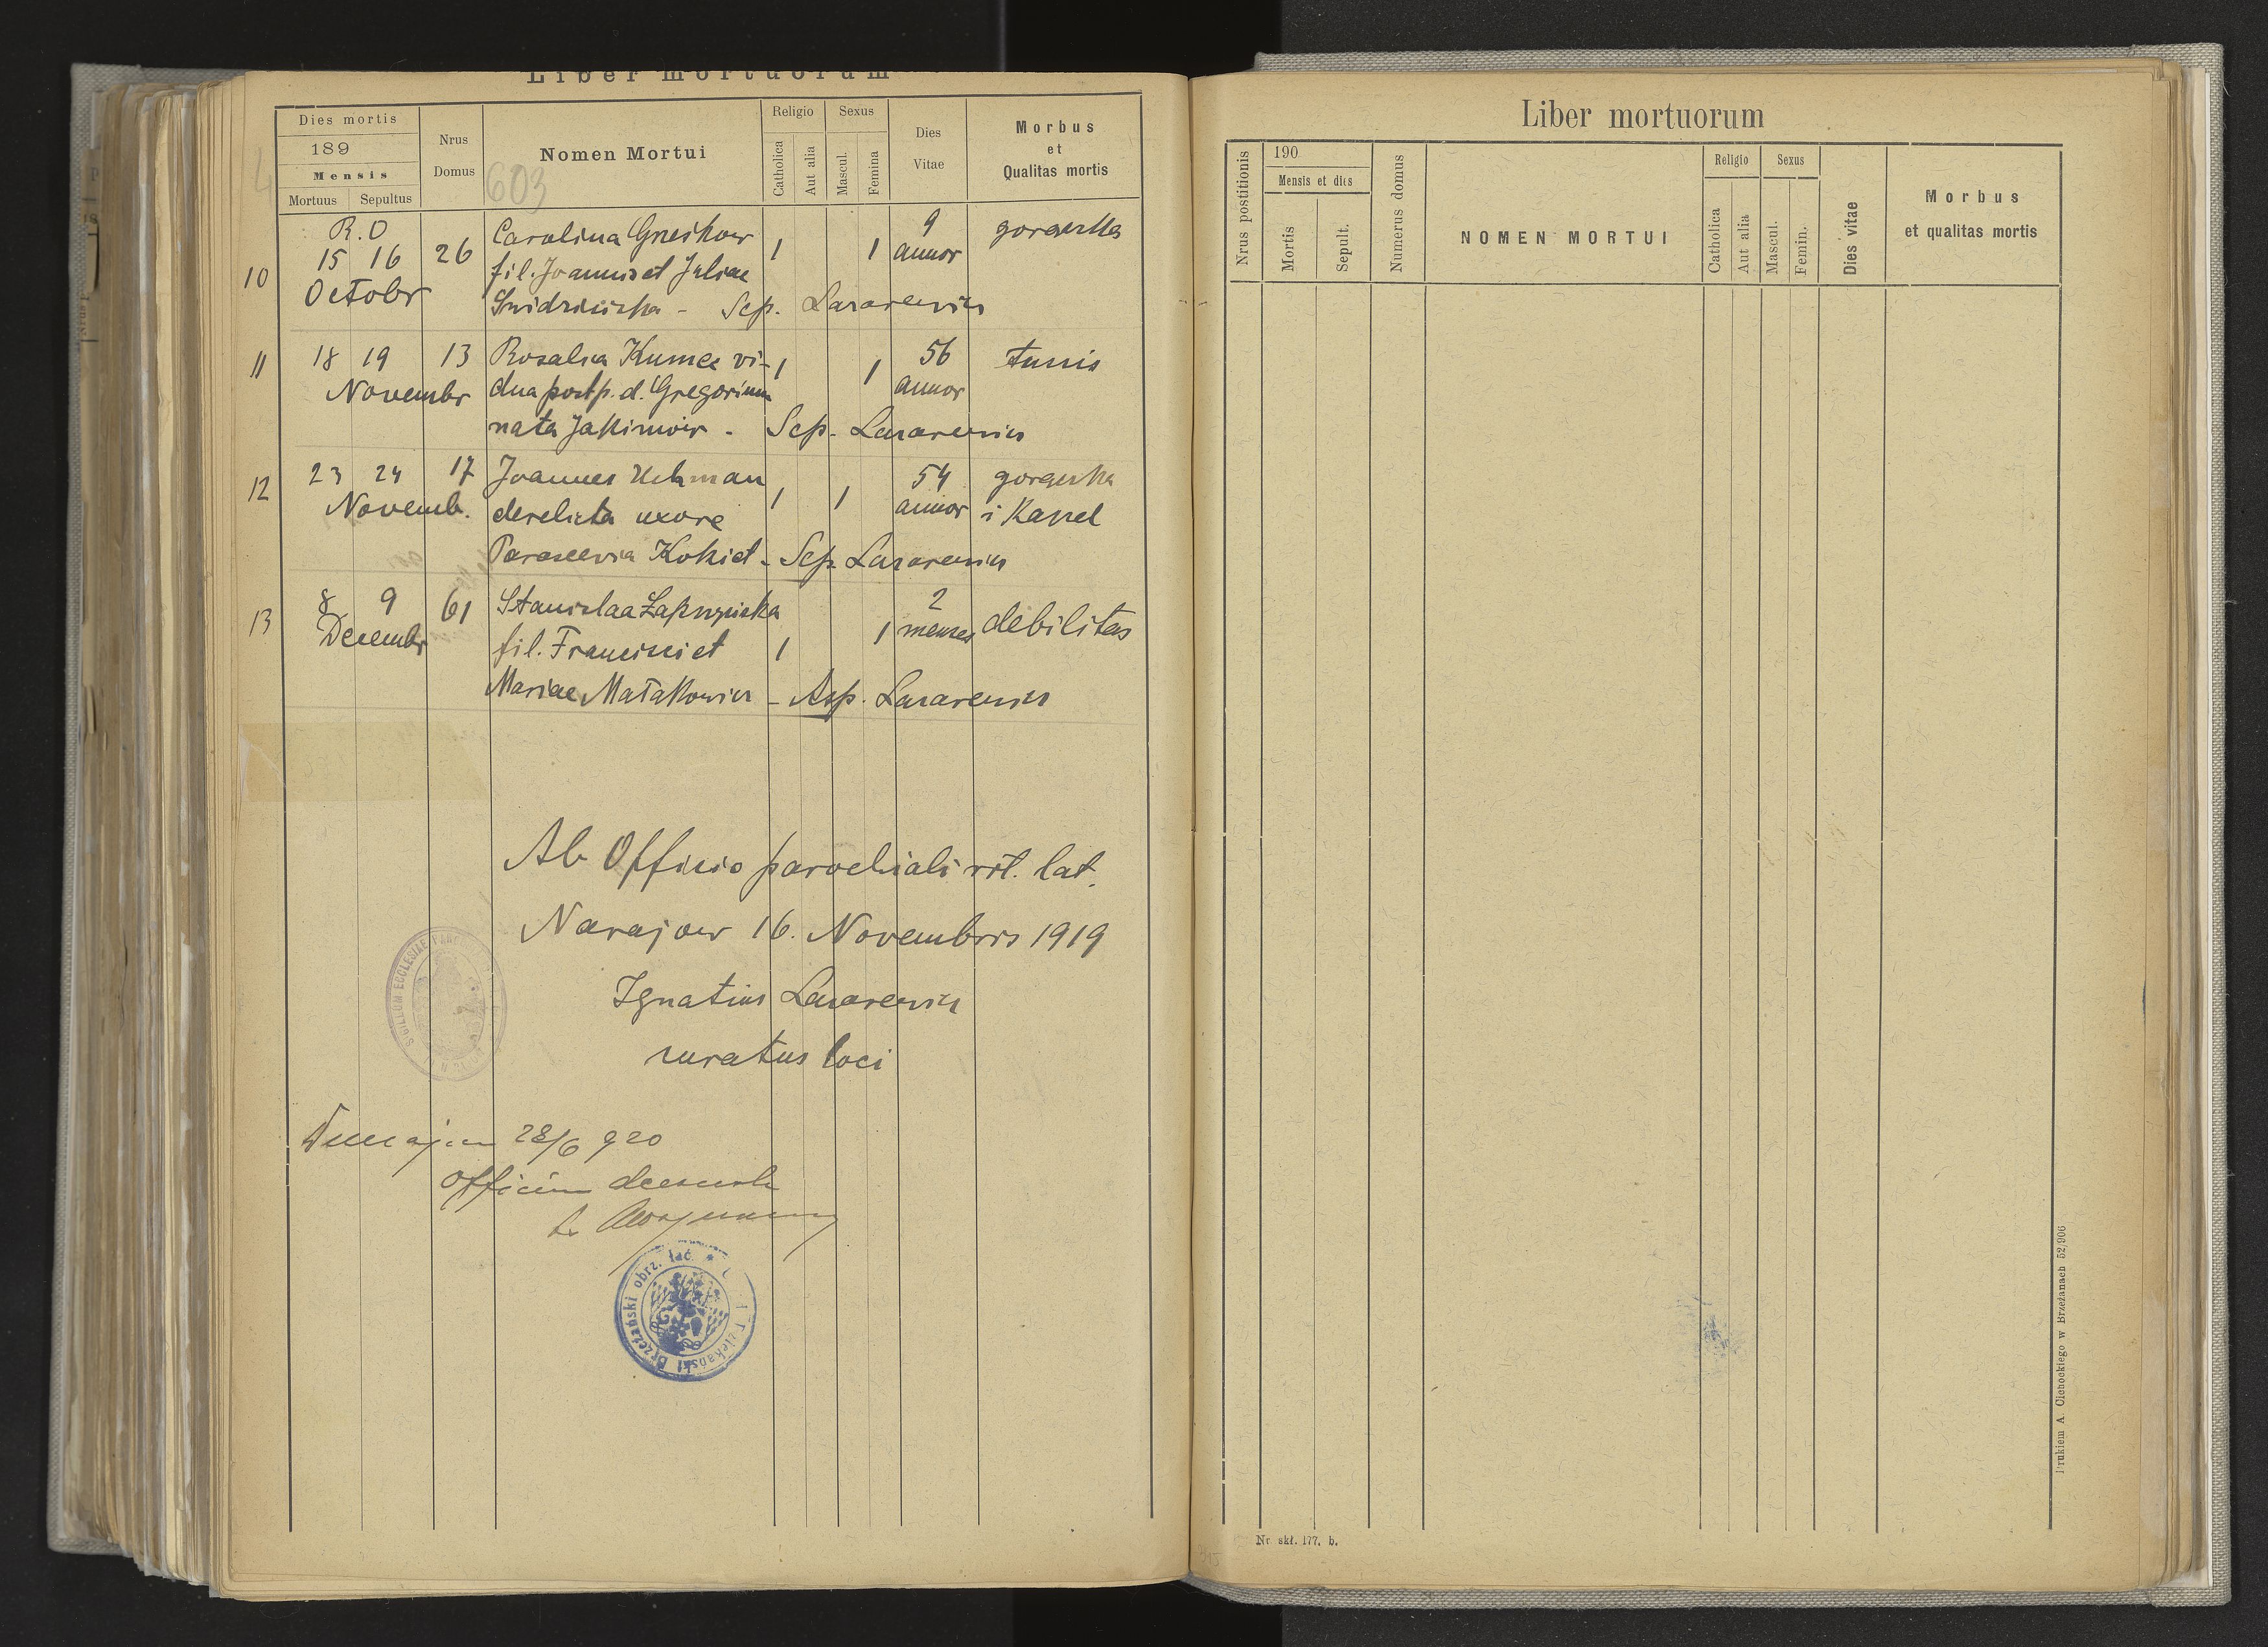 Liber mortuorum
Dies mortis
189
Mensis
Mortuus Sepultus
Nrus Domus
Nomen Mortui
603
Religio
Catholica
Aut alia
Sexus
Mascul.
Femina
Dies Vitae
Morbus
et
Qualitas mortis
R. D
10 15 16 26 Carolina Gneskow 1 1 9 annor
Octobr fil. Joannis et Juliae
Sep. Lazarewicz
11 18 19 13 Rosalia Kumec vi- 1 1 56 tussis
Novembr dua post p. d. Gregorium annor
nata Jakimow - Sep. Lazarewicz
12 23 24 17 Joannes Uhman 1 1 54 gorączka
Novemb. derelicta uxore annor i kaszel
Parascevia Kokiet - Sep. Lazarewicz
13 8 9 61 Stanislaa 2
Decembr fil. Francisci et 1 1 menses debilitas
Mariae Matakowicz - Asp. Lazarewicz
Ab Officio parochiali rit. lat.
Narajow 16. Novembris 1919
Ignatius Lazarewicz
curatus loci
SIGILLUM ECCLESIAE
28/6 920
Officium
Brzeżański obrz. łać.
Liber mortuorum
Nrus postitionis
190
Mensis et dies
Mortis
Sepult.
Numerus domus
NOMEN MORTUI
Religio
Catholica
Aut alia
Sexus
Mascul.
Femin.
Dies vitae
Morbus
et qualitas mortis
Drukiem A. Cichockiego w Brzeżanach 52/906
Nr. skł. 177. b.